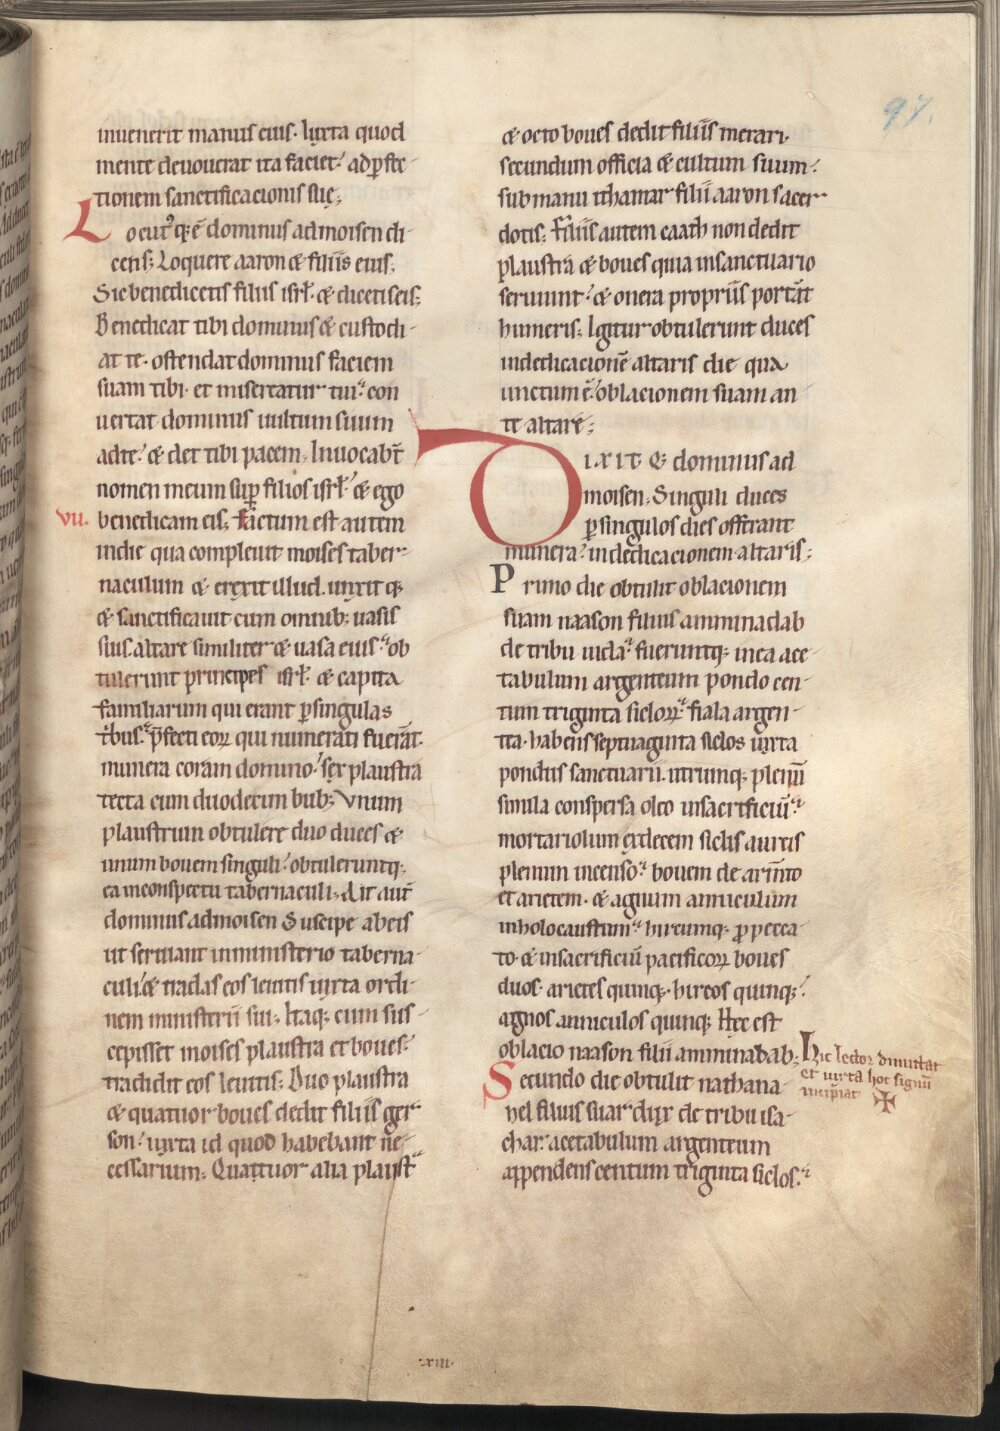 97.
inuenerit manus eius. Iuxta quod
mente deuouerat ita faciet. ad ꝑfec
tionem sanctificacionis suę;
Locutꝰ qꝫ ē dominus ad moisen di
cens; Loquere aaron & filiis eius.
Sic benedicetis filiis isrl̄. & dicetis eis;
Benedicat tibi dominus & custodi-
at te. ostendat dominus faciem
suam tibi. et misereatur tui. con
uertat dominus uultum suum
ad te. & det tibi pacem. Inuocabt̄
nomen meum suꝑ filios isrl̄. & ego
vii. benedicam eis; Factum est autem
in die qua compleuit moises taber-
naculum & erexit illud. unxit qꝫ
& sanctificauit cum omnibꝫ uasis
suis. altare similiter & uasa eius. ob
tulerunt principes isrl̄. & capita
familiarum qui erant ꝑ singulas
t̄bus. p̄fecti eoꝝ qui numerati fuerāt.
munera coram domino. sex plaustra
tecta cum duodecim bubꝫ. Vnum
plaustrum obtulere duo duces &
unum bouem singuli. obtuleruntqꝫ
ea in conspectu tabernaculi. Ait aut̄
dominus ad moisen Suscipe ab eis
ut seruiant in ministerio taberna-
culi. & tradas eos leuitis iuxta ordi-
nem ministerii sui. Itaqꝫ cum sus-
cepisset moises plaustra et boues.
tradidit eos leuitis; Duo plaustra
& quatuor boues dedit filiis ger
son. iuxta id quod habebant ne-
cessarium; Quattuor alia plaustra
& octo boues dedit filiis merari.
secundum officia & cultum suum.
sub manu ithamar filii aaron sacer-
dotis; Filiis autem caath non dedit
plaustra & boues quia in sanctuario
seruiunt. & onera propriis portāt
humeris; Igitur obtulerunt duces
in dedicacionē altaris die qua
unctum ē. oblacionem suam an-
te altare;
DIXIT Q; dominus ad
moisen; Singuli duces
ꝑ singulos dies offerant
munera. in dedicacionem altaris;
Primo die obtulit oblacionem
suam naason filius amminadab
de tribu iuda. fueruntqꝫ in ea ace-
tabulum argenteum pondo cen-
tum triginta sicloꝝ. fiala argen-
tea. habens septuaginta siclos iuxta
pondus sanctuarii. utrumqꝫ plenū
simila conspersa oleo in sacrificiū.
mortariolum ex decem siclis aureis
plenum incenso. bouem de arm̄to
et arietem. & agnum anniculum
in holocaustum. hircumqꝫ ꝓ pecca-
to. & in sacrificiū pacificoꝝ boues
duos. arietes quinqꝫ. hircos quinqꝫ.
agnos anniculos quinqꝫ Hec est
oblacio naason filii amminadab;
Hic lector dimittat
et iuxta hoc signū
incipiat ✠
Secundo die obtulit nathana-
hel filius suar dux de tribu isa-
char. acetabulum argenteum
appendens centum triginta siclos.
.xiii.